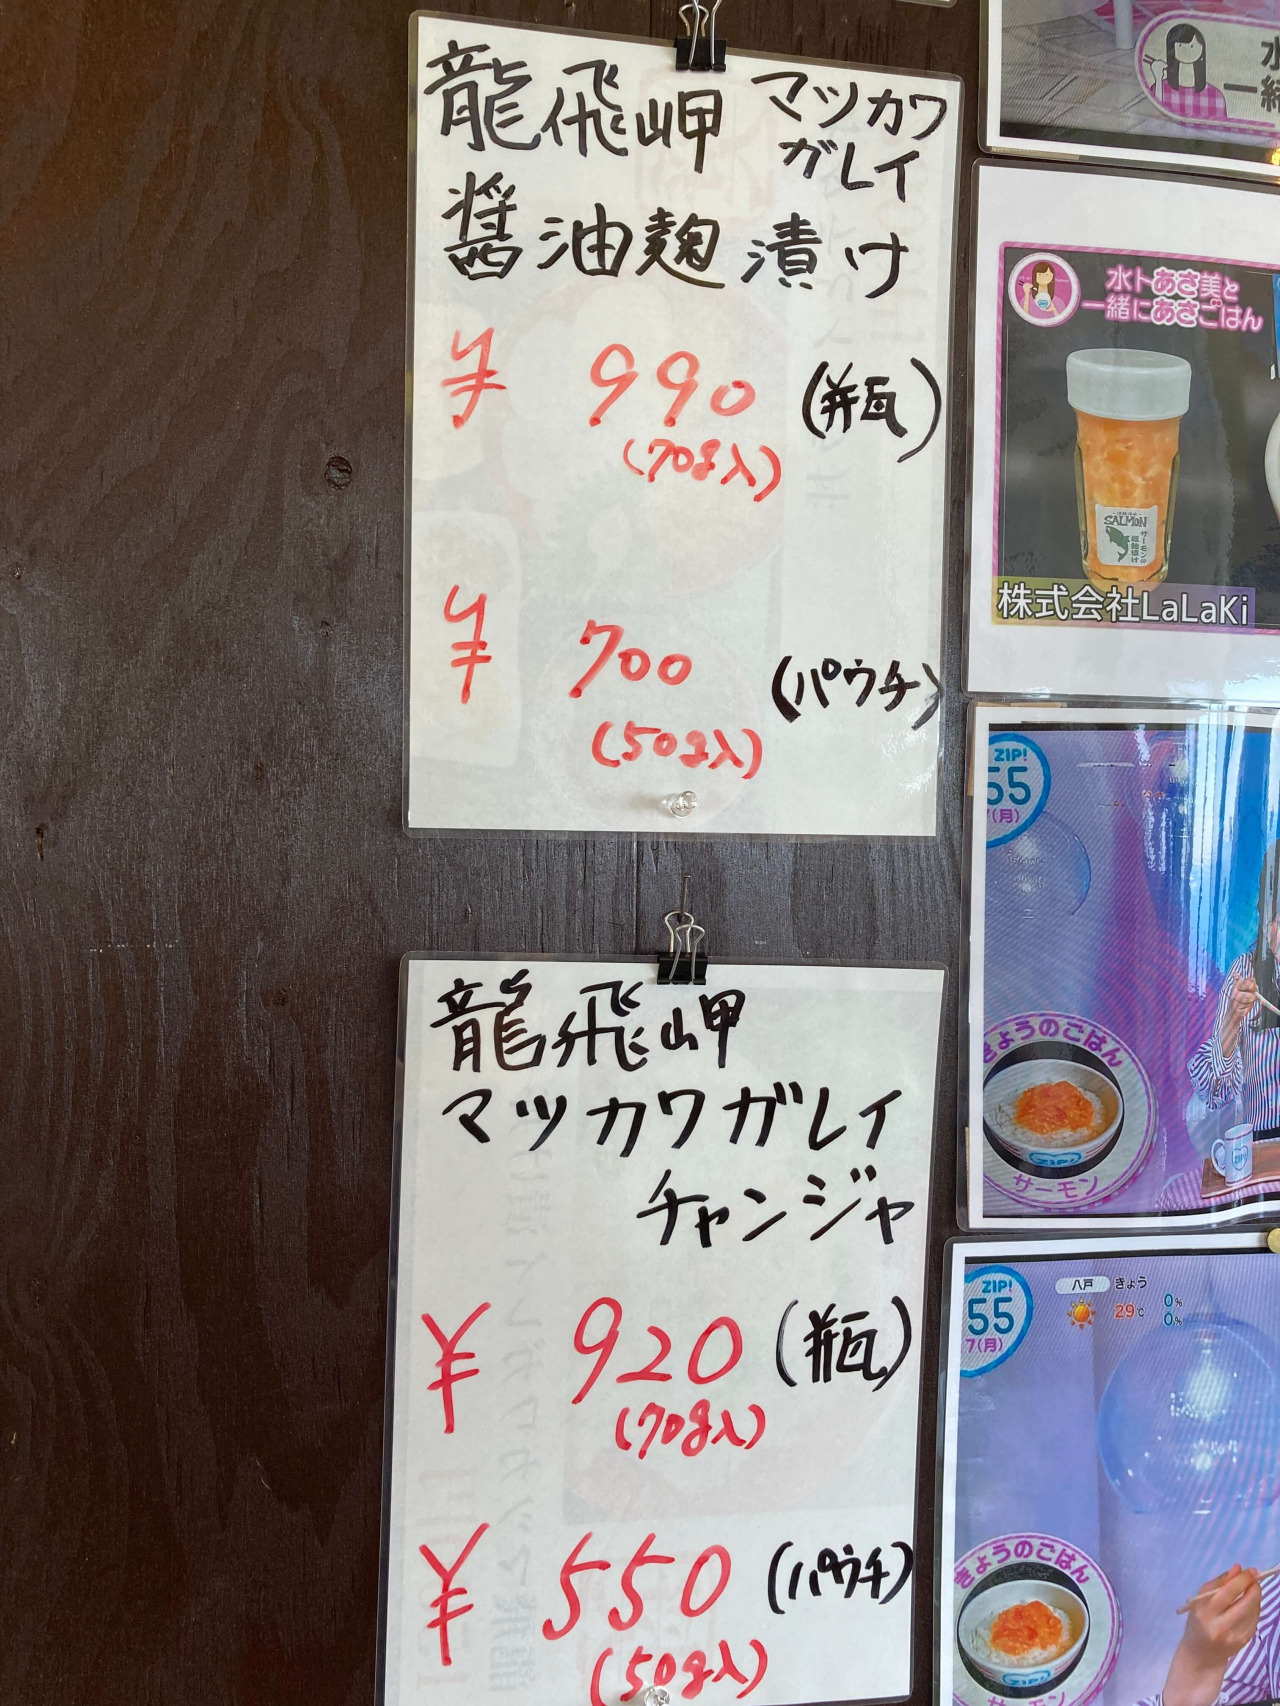 龍飛岬 マツカワ
ガレイ
醤油麹漬け
¥ 990 (瓶)
(70g入)
¥ 700 (パウチ)
(50g入)
龍飛岬
マツカワガレイ
チャンジャ
¥ 920 (瓶)
(70g入)
¥ 550 (パウチ)
(50g入)
水卜あさ美と
一緒にあさごはん
SALMON
サーモンの
株式会社LaLaKi
ZIP!
55
(月)
きょうのごはん
ZIP!
サーモン
ZIP!
ZIP!
55
7(月)
八戸 きょう
29℃ 0%
0%
きょうのごはん
ZIP!
サーモン